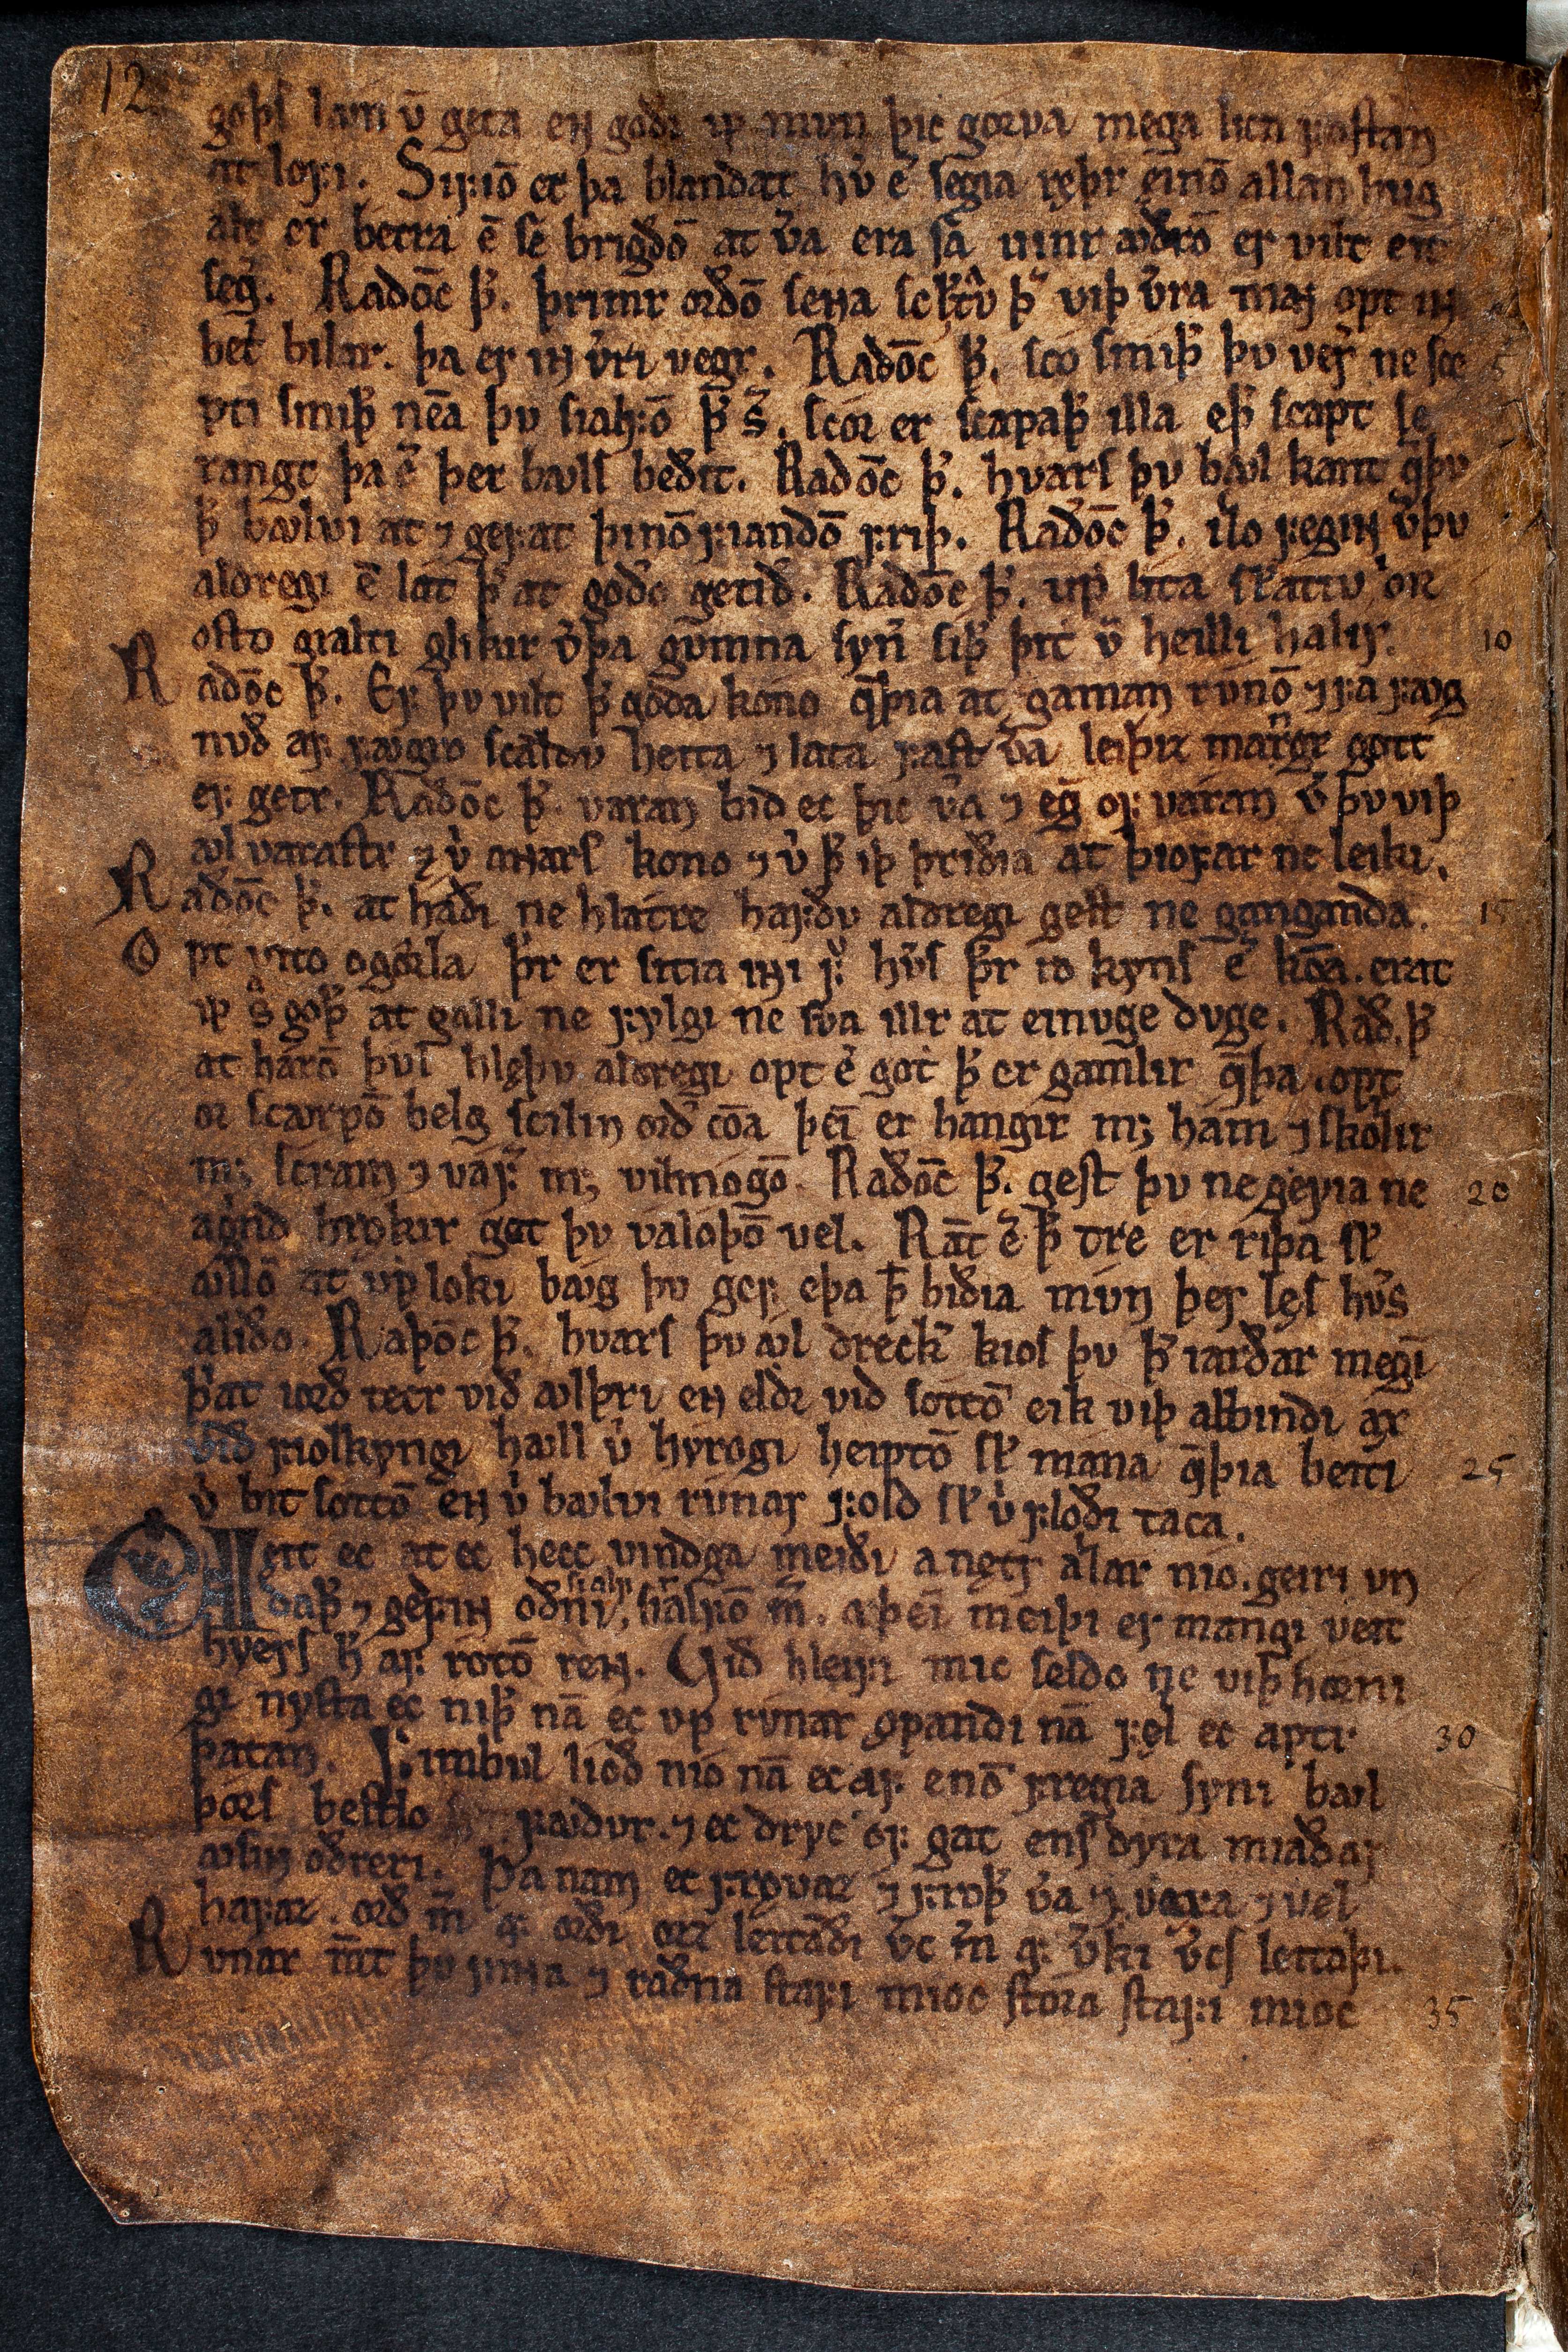 12
goþs laun v̄ geta en goðr mꝼ mvn þic gorva mega licn faſtan
at lofi. Sifiō er þa blandat hv̓ er ſegia ręþr einō allan hug
alt er betra ē ſe brigðō at v̓a era ſa vinr ꜹðrō er vilt eitt
ſeg̓. Radōc þ̓. þrimr orðō ſenna ſcꝉtv þ̓ viþ v̓ra maɴ opt iɴ
betri bilar. þa er iɴ v̓ri vegr. Radōc þ̓. ſco ſmiþ̓ þv ver̓ ne ſce
pti ſmiþ̓ nēa þv ſialfō þ̓ ſ̓. ſcór er ſcapaþ̓ illa eþ̓ ſcapt ſe 5
rangt þa ē̓ þer bꜹls beðit. Radōc þ̓. hvars þv bꜹl kant q̄þv
þ̓ bꜹlvi at ⁊ gefat þinō fiandō friþ. Radōc þ̓. illo fegiɴ v̓þv
aldregi ē lat þ̓ at góðo getið. Radōc þ̓. vpp lita ſkꝉattv í or
oſto gialti glikir v̓þa gvmna ſyn̓ ſiþ̓ þitt v̄ heilli halir. 10
Radōc þ̓. Ef þv vilt þ̓ góða kono q̄þia at gaman rvnō ⁊ fa fꜹg
nvð af fꜹgro ſcaldv heita ⁊ lata faſt v̓a leiþiz mangr gott
ef getr. Radōc þ̓. varan bið ec þic v̓a ⁊ eg̓ of varan v̓ þv viþ
ꜹl varaſtr ⁊ v̓ aɴars kono ⁊ v̓ þ̓ iþ þriðia at þiofar ne leiki.
Radōc þ̓. at háði ne hlátre hafðv aldregi geſt ne ganganda. 15
Opt vito ogórla þ̓r er ſitia iɴi f̓ hv̓s þ̓r ro kyns ē̓ kōa. erat
mꝼ ſ̓ góþ̓ at galli ne fylgi ne ſva illr at einvge dvge. Rað. þ̓
at hárō þvl hlęþv aldregi opt ē̓ gott þ̓ er gamlir q̄þa. opt
or ſcꜹrpō belg ſcilin orð cōa þei̅ er hangir mꝫ hám ⁊ ſkollir
mꝫ ſcram ⁊ vaf̓ mꝫ vilmogō. Radōc þ̓. geſt þv ne geyia ne 20
a grind hrękir get þv valoþō vel. Rāt ē̓ þ̓ tre er riþa ſkꝉ
ꜹllō at vpp loki bꜹg þv gef eþa þ̓ biðia mvn þer lęs hv̓s
a liðo. Raþōc þ̓. hvars þv ꜹl dreck̓ kios þv þ̓ iarðar megi̅
þ̓at iorð tecr við ꜹlþri en eldr við ſóttō eik viþ abbindi ax
við fiolkyngi hꜹll v̓ hyrogi heiptō ſkꝉ mána q̄þia beiti 25
v̓ bit ſóttō en v̓ bꜹlvi rúnar fold ſkꝉ v̓ flóði taca.
Ueit ec at ec hecc vindga meiði a nętr allar nio. geiri vn
daþ̓ ⁊ gefiɴ oðni, ſialfr ſialfō m̓. a þei̅ meiþi er mangi veit
hvers h̓ af rótō reɴ. Við hleifi mic ſeldo ne viþ horni
gi nyſta ec niþ̓ nā ec vp rúnar ǫpandi nā fel ec aptr 30
þatan. Fimbvl lioð nio nā ec af enō fręgia ſyni bꜹl
þórs beſtlo fꜹdvr. ⁊ ec dryc of gat ens dyra miaðar
ꜹſin oðreri. Þa nam ec frǫvaz ⁊ froþ̓ v̓a ⁊ vaxa ⁊ vel
hafaz. orð m̓ af orði orz leitaði v̓c m̓ af v̓ki v̓cs leitoþi.
Rvnar mt̓ þv fiɴa ⁊ raðna ſtafi mioc ſtóra ſtafi mioc 35